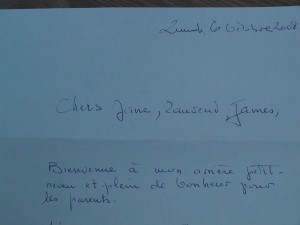 6 Octobre
Chers Jane, James,
Bienvenue à mon arrière petit-
neveu et plein de bonheur pour
les parents.